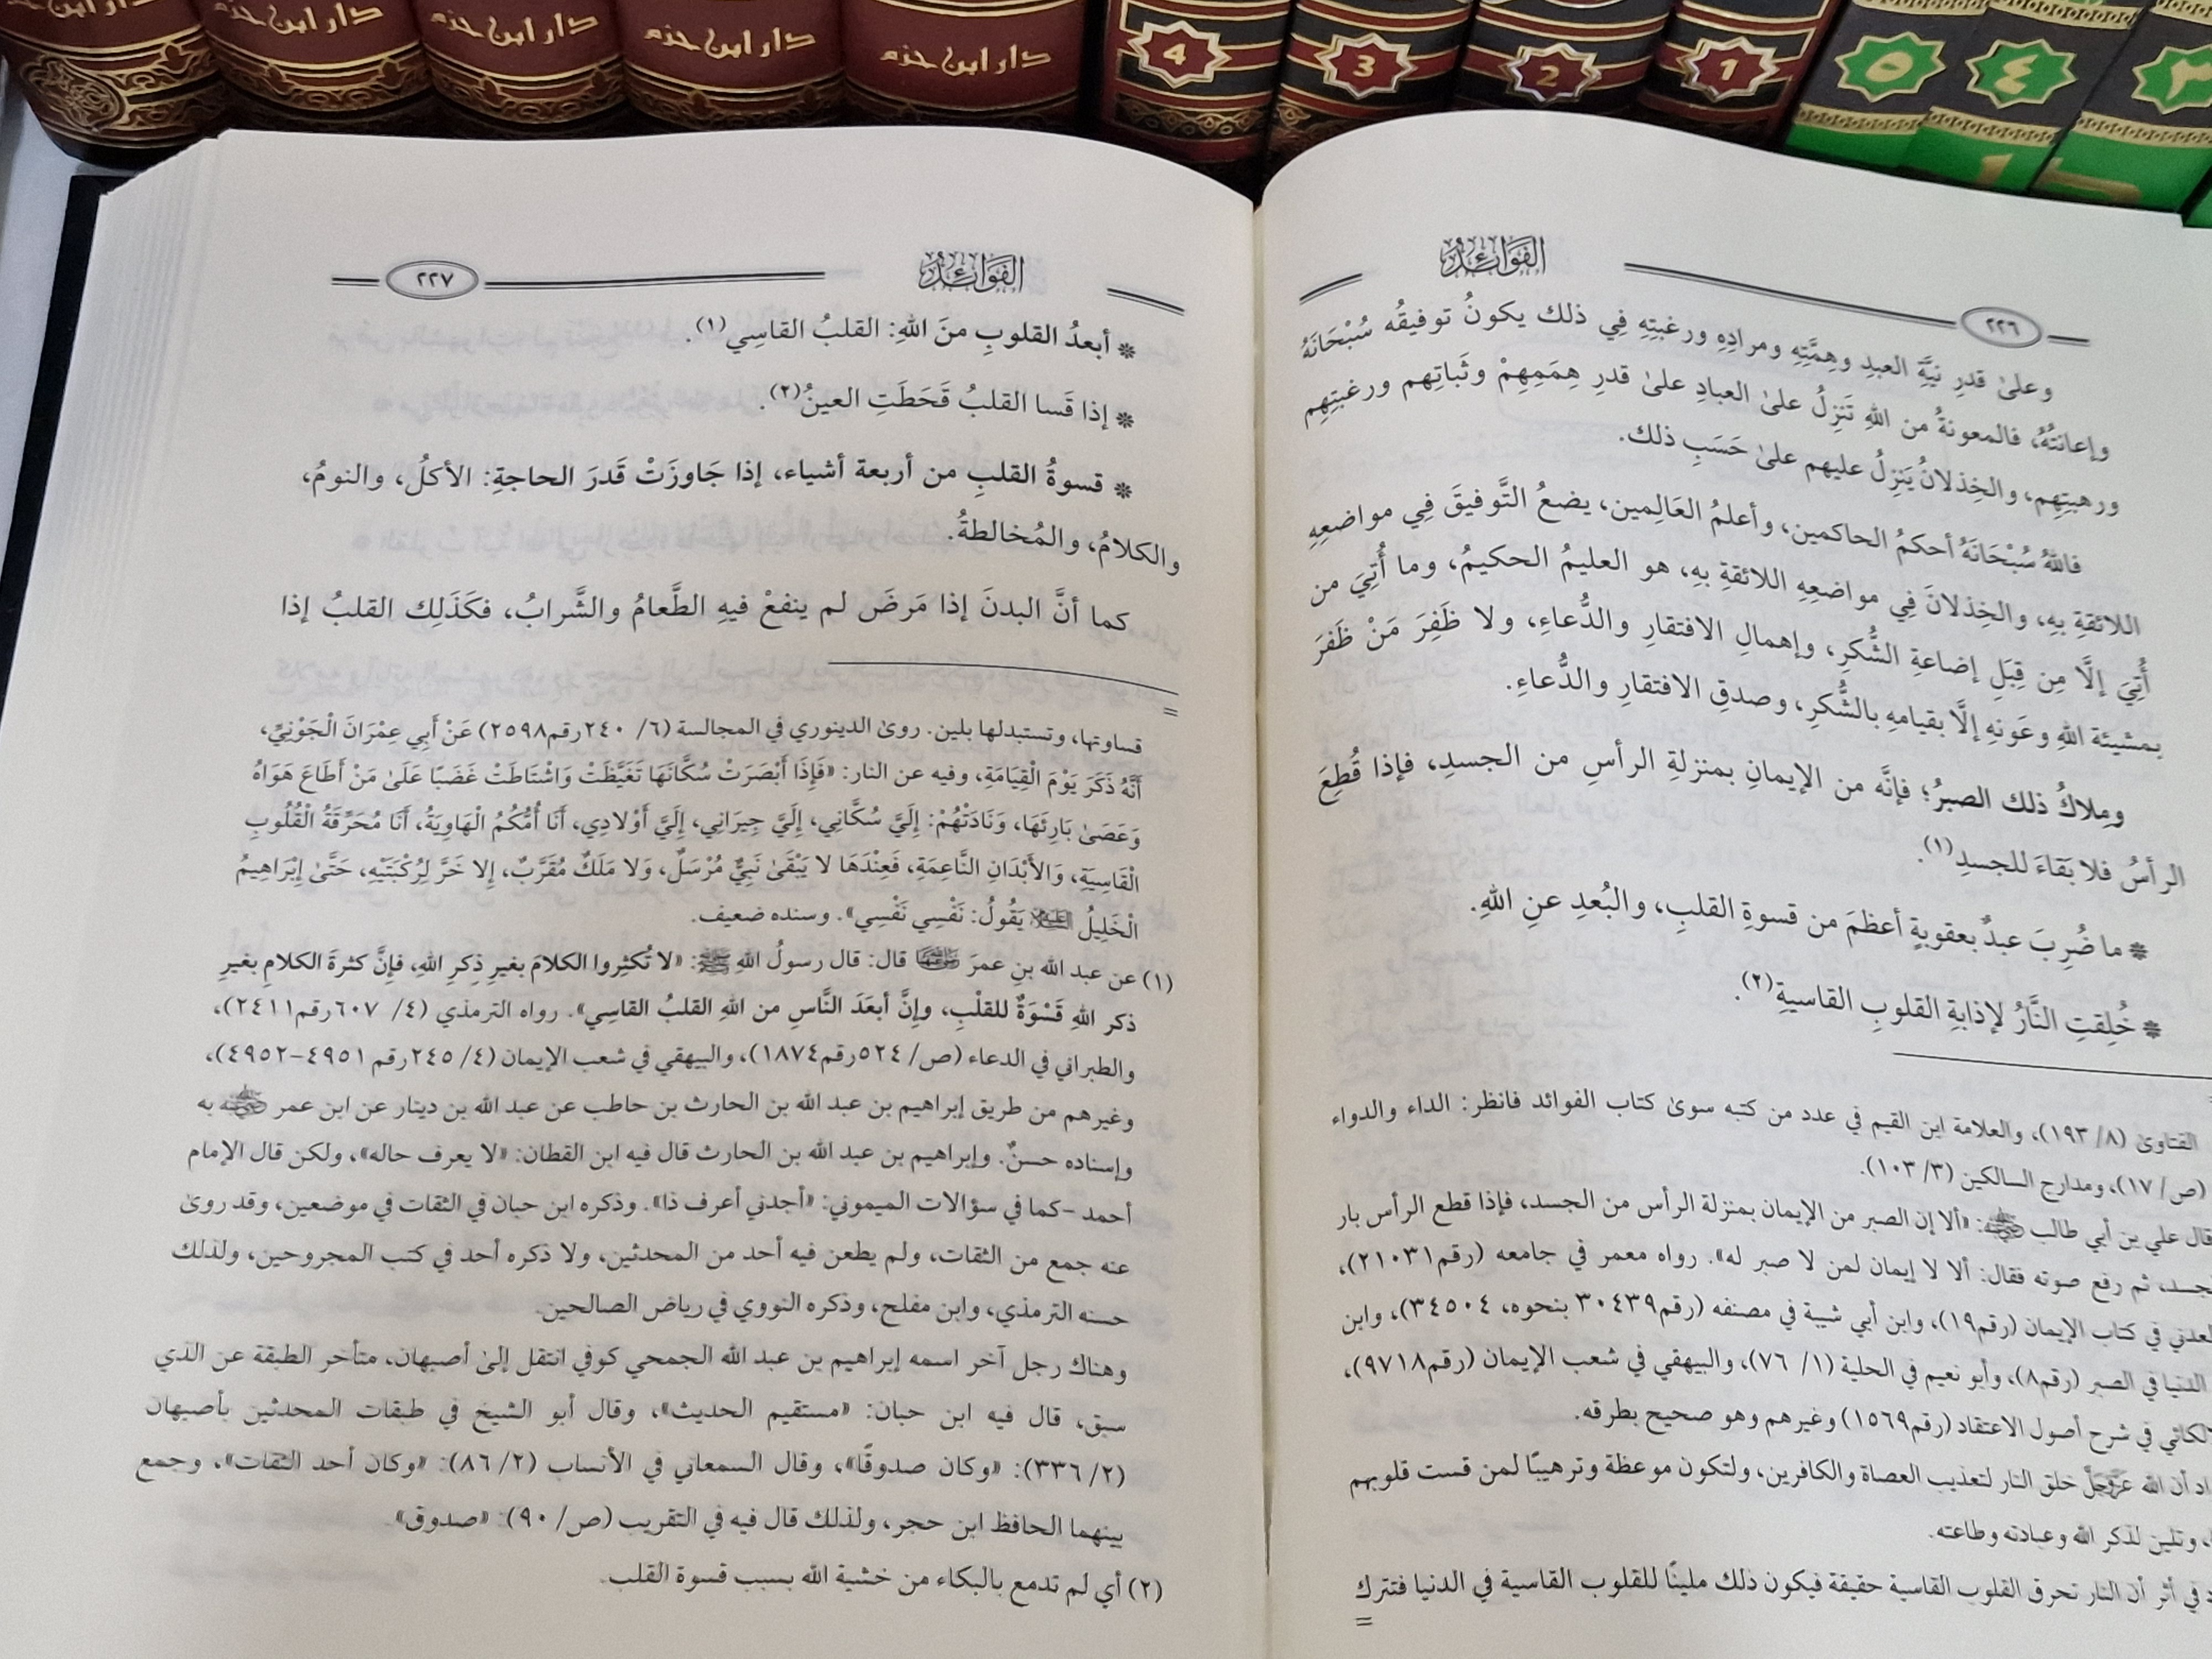 دار ابن حزم
دار ابن حزم
دار ابن حزم
دار ابن حزم
4
3
2
1
٥
٤
٣
الفَوَائِدُ
٢٢٦
وعلىٰ قدرِ نيَّةِ العبدِ وهِمَّتِهِ ومرادِهِ ورغبتِهِ فِي ذلك يكونُ توفيقُه سُبْحَانَهُ
وإعانتُهُ، فالمعونةُ من اللهِ تَنزِلُ علىٰ العبادِ علىٰ قدرِ هِمَمِهِمْ وثَباتِهم ورغبتِهِم
ورهبتِهِم، والخِذلانُ يَنزِلُ عليهم علىٰ حَسَبِ ذلك.
فاللهُ سُبْحَانَهُ أحكمُ الحاكمين، وأعلمُ العَالِمين، يضعُ التَّوفيقَ فِي مواضعِهِ
اللائقةِ بهِ، والخِذلانَ فِي مواضعِهِ اللائقةِ بهِ، هو العليمُ الحكيمُ، وما أُتِيَ من
أُتِيَ إلَّا مِن قِبَلِ إضاعةِ الشُّكرِ، وإهمالِ الافتقارِ والدُّعاءِ، ولا ظَفِرَ مَنْ ظَفرَ
بمشيئة اللهِ وعَونهِ إلَّا بقيامهِ بالشُّكرِ، وصدقِ الافتقارِ والدُّعاءِ.
وملاكُ ذلك الصبرُ؛ فإنَّه من الإيمانِ بمنزلةِ الرأسِ من الجسدِ، فإذا قُطِعَ
الرأسُ فلا بَقاءَ للجسدِ(١).
❋ ما ضُرِبَ عبدٌ بعقوبةٍ أعظمَ من قسوةِ القلبِ، والبُعدِ عنِ اللهِ.
❋ خُلِقتِ النَّارُ لإذابةِ القلوبِ القاسيةِ(٢).
الفتاوىٰ (٨/ ١٩٣)، والعلامة ابن القيم في عدد من كتبه سوىٰ كتاب الفوائد فانظر: الداء والدواء
(ص/ ١٧)، ومدارج السالكين (٣/ ١٠٣).
قال علي بن أبي طالب ﵁: «ألا إن الصبر من الإيمان بمنزلة الرأس من الجسد، فإذا قطع الرأس بار
جسد، ثم رفع صوته فقال: ألا لا إيمان لمن لا صبر له». رواه معمر في جامعه (رقم٢١٠٣١)،
لعدني في كتاب الإيمان (رقم١٩)، وابن أبي شيبة في مصنفه (رقم٣٠٤٣٩ بنحوه، ٣٤٥٠٤)، وابن
الدنيا في الصبر (رقم٨)، وأبو نعيم في الحلية (١/ ٧٦)، والبيهقي في شعب الإيمان (رقم٩٧١٨)،
لكائي في شرح أصول الاعتقاد (رقم١٥٦٩) وغيرهم وهو صحيح بطرقه.
اد أن الله عَزَّوَجَلَّ خلق النار لتعذيب العصاة والكافرين، ولتكون موعظة وترهيبًا لمن قست قلوبهم
، وتلين لذكر الله وعبادته وطاعته.
في أثر أن النار تحرق القلوب القاسية حقيقة فيكون ذلك ملينًا للقلوب القاسية في الدنيا فتترك
=
الفَوَائِدُ
٢٢٧
❋ أبعدُ القلوبِ منَ اللهِ: القلبُ القاسِي(١).
❋ إذا قَسا القلبُ قَحَطَتِ العينُ(٢).
❋ قسوةُ القلبِ من أربعة أشياء، إذا جَاوزَتْ قَدرَ الحاجةِ: الأكلُ، والنومُ،
والكلامُ، والمُخالطةُ.
كما أنَّ البدنَ إذا مَرضَ لم ينفعْ فيهِ الطَّعامُ والشَّرابُ، فكَذَلِك القلبُ إذا
=
قساوتها، وتستبدلها بلين. روىٰ الدينوري في المجالسة (٦/ ٢٤٠رقم٢٥٩٨) عَنْ أَبِي عِمْرَانَ الْجَوْنِيِّ،
أَنَّهُ ذَكَرَ يَوْمَ الْقِيَامَةِ، وفيه عن النار: «فَإِذَا أَبْصَرَتْ سُكَّانَهَا تَغَيَّظَتْ وَاشْتَاطَتْ غَضَبًا عَلَىٰ مَنْ أَطَاعَ هَوَاهُ
وَعَصَىٰ بَارِئَهَا، وَنَادَتْهُمْ: إِلَيَّ سُكَّانِي، إِلَيَّ جِيرَانِي، إِلَيَّ أَوْلادِي، أَنَا أُمُّكُمُ الْهَاوِيَةُ، أَنَا مُحَرِّقَةُ الْقُلُوبِ
الْقَاسِيَةِ، وَالأَبْدَانِ النَّاعِمَةِ، فَعِنْدَهَا لا يَبْقَىٰ نَبِيٌّ مُرْسَلٌ، وَلا مَلَكٌ مُقَرَّبٌ، إِلا خَرَّ لِرُكْبَتَيْهِ، حَتَّىٰ إِبْرَاهِيمُ
الْخَلِيلُ ﵇ يَقُولُ: نَفْسِي نَفْسِي». وسنده ضعيف.
(١) عن عبد الله بنِ عمرَ ﵄ قال: قال رسولُ اللهِ ﷺ: «لا تُكثِروا الكلامَ بغيرِ ذِكرِ اللهِ، فإنَّ كثرةَ الكلامِ بغيرِ
ذكر اللهِ قَسْوَةٌ للقلْبِ، وإنَّ أبعَدَ النَّاسِ من اللهِ القلبُ القاسِي». رواه الترمذي (٤/ ٦٠٧رقم٢٤١١)،
والطبراني في الدعاء (ص/ ٥٢٤رقم١٨٧٤)، والبيهقي في شعب الإيمان (٤/ ٢٤٥رقم ٤٩٥١-٤٩٥٢)،
وغيرهم من طريق إبراهيم بن عبد الله بن الحارث بن حاطب عن عبد الله بن دينار عن ابن عمر به
وإسناده حسنٌ. وإبراهيم بن عبد الله بن الحارث قال فيه ابن القطان: «لا يعرف حاله»، ولكن قال الإمام
أحمد -كما في سؤالات الميموني: «أجدني أعرف ذا». وذكره ابن حبان في الثقات في موضعين، وقد روىٰ
عنه جمع من الثقات، ولم يطعن فيه أحد من المحدثين، ولا ذكره أحد في كتب المجروحين، ولذلك
حسنه الترمذي، وابن مفلح، وذكره النووي في رياض الصالحين.
وهناك رجل آخر اسمه إبراهيم بن عبد الله الجمحي كوفي انتقل إلىٰ أصبهان، متأخر الطبقة عن الذي
سبق، قال فيه ابن حبان: «مستقيم الحديث»، وقال أبو الشيخ في طبقات المحدثين بأصبهان
(٢/ ٣٣٦): «وكان صدوقًا»، وقال السمعاني في الأنساب (٢/ ٨٦): «وكان أحد الثقات»، وجمع
بينهما الحافظ ابن حجر، ولذلك قال فيه في التقريب (ص/ ٩٠): «صدوق».
(٢) أي لم تدمع بالبكاء من خشية الله بسبب قسوة القلب.